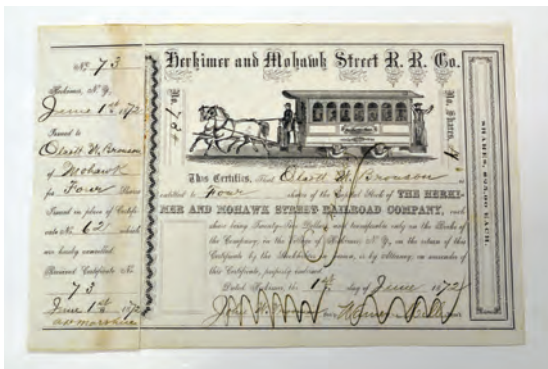 No. 73
Herkimer, N. Y.,
June 1st 1872
Issued to
Olcott M. Bronson
of Mohawk
for Four Shares
Issued in place of Certifi-
cate No. 62 which
are hereby cancelled.
Received Certificate No.
73
June 1st 1872
Herkimer and Mohawk Street R. R. Co.
No.
No. Shares 4
SHARES, $25.00 EACH.
This Certifies, That Olcott M. Bronson is
entitled to Four shares of the Capital Stock of THE HERKI-
MER AND MOHAWK STREET RAILROAD COMPANY, each
share being Twenty-five Dollars, and transferable only on the Books of
the Company, in the Village of Herkimer, N. Y., on the return of this
Certificate by the in person, or by Attorney, on surrender of
this Certificate, properly indorsed.
Dated Herkimer, the 1st day of June 1872